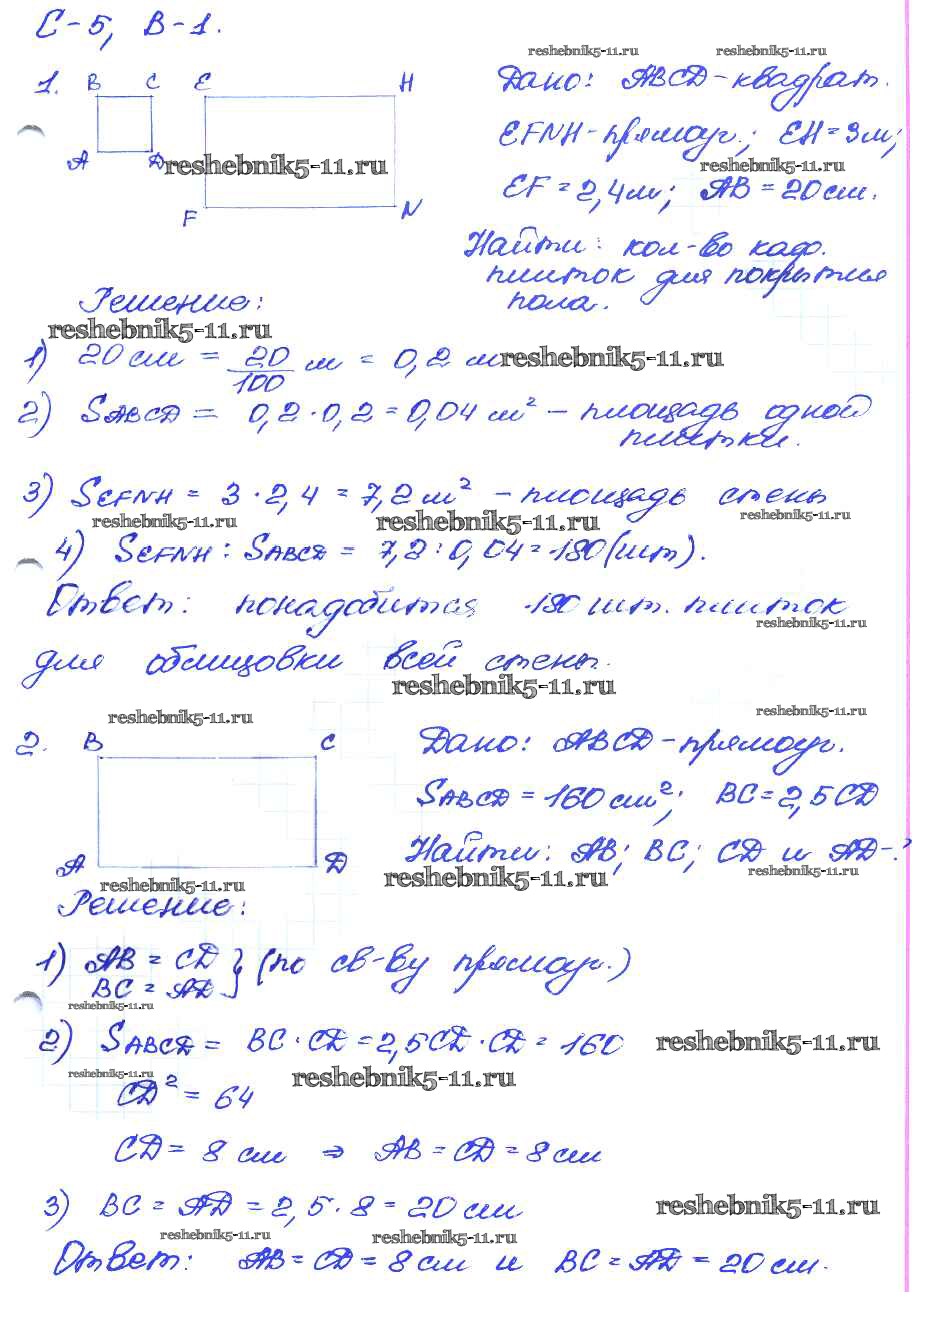 С-5, В-1.
reshebnik5-11.ru reshebnik5-11.ru
1. B C E H Дано: ABCD-квадрат.
EFNH-прямоуг.; EH=3м;
A D reshebnik5-11.ru reshebnik5-11.ru
EF=2,4м; AB=20см.
F N
Найти: кол-во каф.
плиток для покрытия
Решение: пола.
reshebnik5-11.ru
1) 20 см = 20/100 м = 0,2 м reshebnik5-11.ru
2) SABCD = 0,2·0,2=0,04 м² - площадь одной
плитки.
3) SEFNH = 3·2,4=7,2м² - площадь стены
reshebnik5-11.ru reshebnik5-11.ru reshebnik5-11.ru
4) SEFNH : SABCD = 7,2:0,04=180(шт).
Ответ: понадобится 180 шт. плиток
reshebnik5-11.ru
для облицовки всей стены.
reshebnik5-11.ru
reshebnik5-11.ru reshebnik5-11.ru
2. B C Дано: ABCD-прямоуг.
SABCD=160см²; BC=2,5CD
A D Найти: AB; BC; CD и AD-?
reshebnik5-11.ru reshebnik5-11.ru reshebnik5-11.ru
Решение:
1) AB = CD
BC = AD } (по св-ву прямоуг.)
reshebnik5-11.ru
2) SABCD = BC·CD=2,5CD·CD=160 reshebnik5-11.ru
reshebnik5-11.ru reshebnik5-11.ru
CD² = 64
CD = 8 см ⇒ AB=CD=8см
3) BC = AD = 2,5·8=20 см reshebnik5-11.ru
reshebnik5-11.ru reshebnik5-11.ru
Ответ: AB=CD=8см и BC=AD=20см.